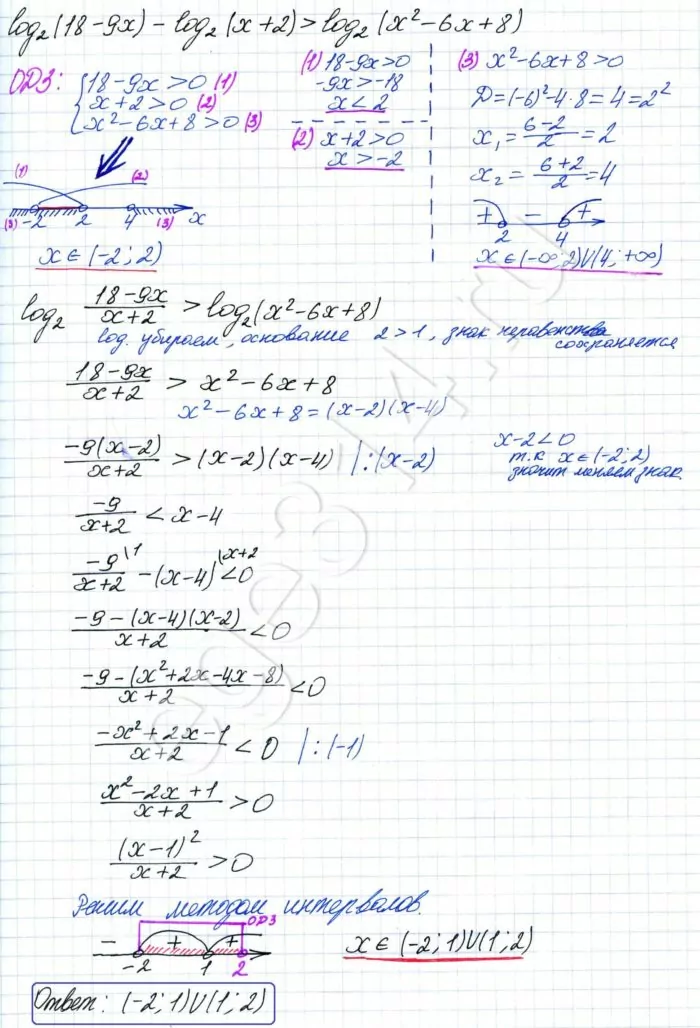 log₂(18-9x) - log₂(x+2) > log₂(x²-6x+8)
ОДЗ: { 18-9x>0 (1)
x+2>0 (2)
x²-6x+8>0 (3)
(1) (2)
(3) -2 2 4 (3) x
x∈(-2; 2)
(1) 18-9x>0
-9x>-18
x<2
(2) x+2>0
x>-2
(3) x²-6x+8>0
Д=(-6)²-4·8=4=2²
x₁=(6-2)/2=2
x₂=(6+2)/2=4
+ - +
2 4
x∈(-∞; 2)U(4; +∞)
log₂ (18-9x)/(x+2) > log₂(x²-6x+8)
log. убираем, основание 2>1, знак неравенства
сохраняется
(18-9x)/(x+2) > x²-6x+8
x²-6x+8=(x-2)(x-4)
-9(x-2)/(x+2) > (x-2)(x-4) |:(x-2)
x-2<0
т.к x∈(-2; 2)
значит меняем знак.
-9/(x+2) < x-4
-9\1/(x+2) -(x-4)\x+2 <0
(-9-(x-4)(x-2))/(x+2) <0
(-9-(x²+2x-4x-8))/(x+2) <0
(-x²+2x-1)/(x+2) < 0 |:(-1)
(x²-2x+1)/(x+2) >0
(x-1)²/(x+2) >0
Решим методом интервалов.
ОДЗ
- + +
-2 1 2
x∈(-2; 1)U(1; 2)
Ответ: (-2; 1)U(1; 2)